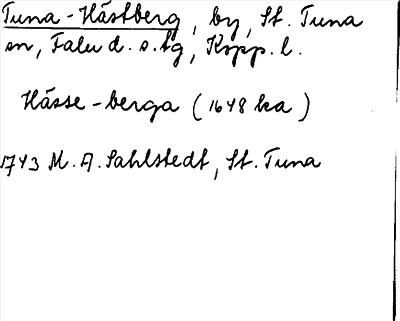 Tuna-Hästberg, by, St. Tuna
sn, Falu d. s. tg, Kopp. l.
Hässe-berga (1648 ka)
1743 M. A. Sahlstedt, St. Tuna